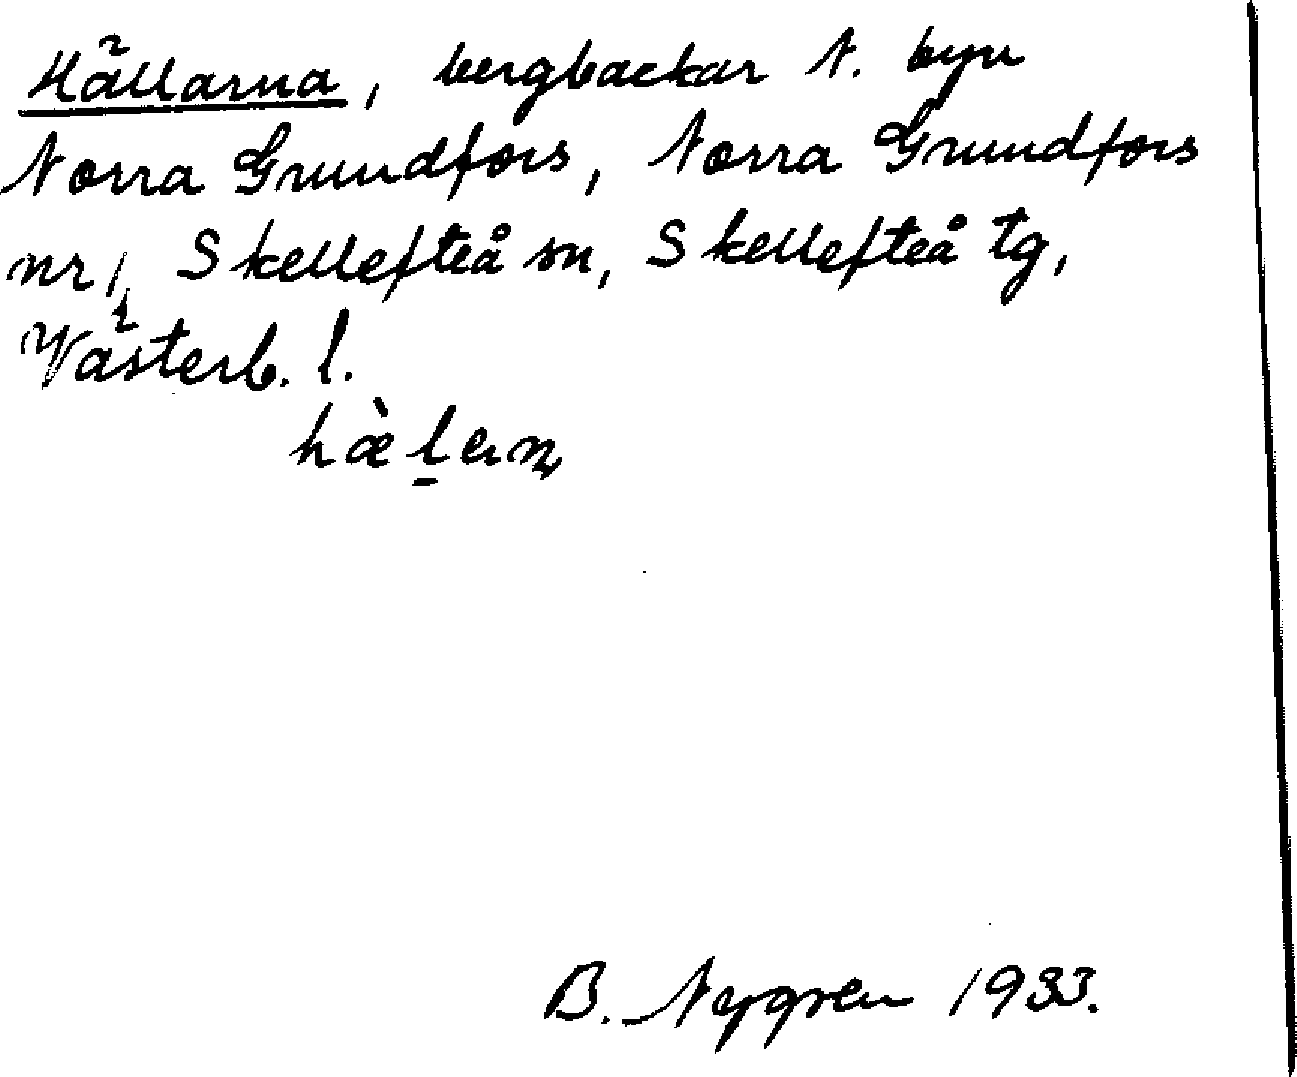 Hällarna, bergbackar N. byn
Norra Grundfors, Norra Grundfors
nr 1, Skellefteå sn, Skellefteå tg,
Västerb. l.
B. Nygren 1933.